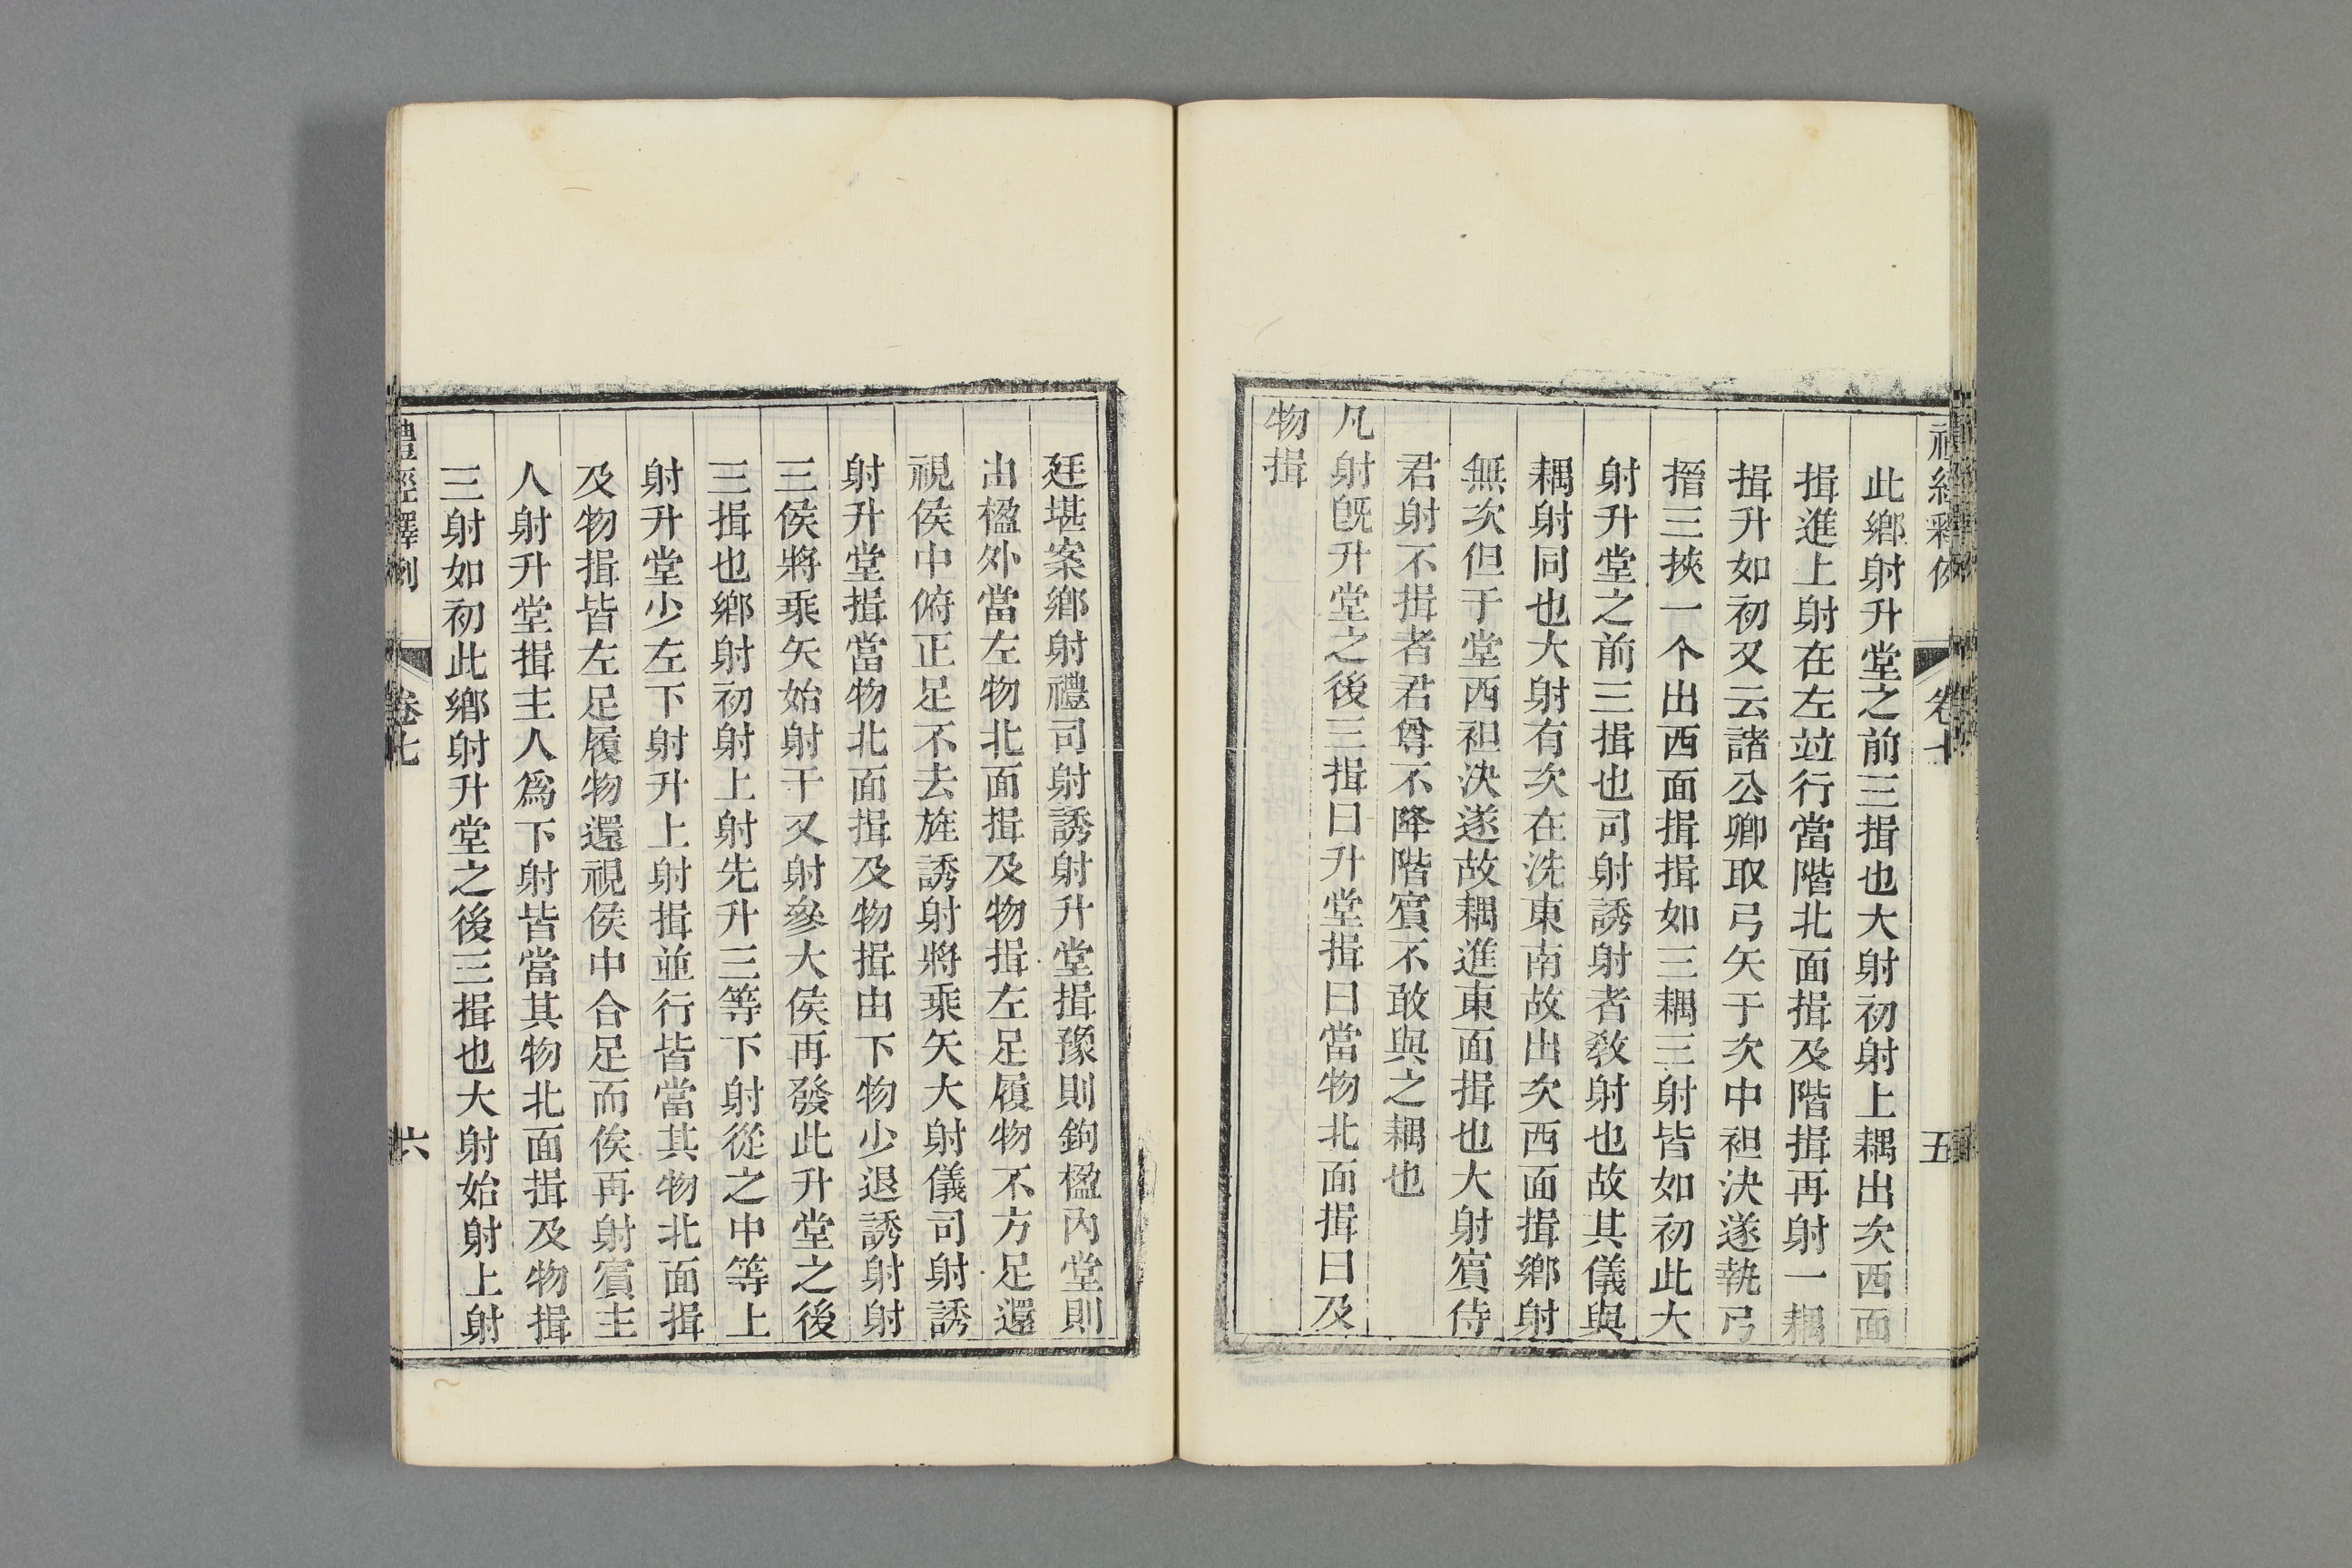 此鄉射升堂之前三揖也大射初射上耦出次西面
揖進上射在左竝行當階北面揖及階揖再射一耦
揖升如初又云諸公卿取弓矢于次中袒決遂執弓
搢三挾一个出西面揖揖如三耦三射皆如初此大
射升堂之前三揖也司射誘射者敎射也故其儀與
耦射同也大射有次在洗東南故出次西面揖鄉射
無次但于堂西袒決遂故耦進東面揖也大射賓侍
君射不揖者君尊不降階賓不敢與之耦也
凡射旣升堂之後三揖曰升堂揖曰當物北面揖曰及
物揖
廷堪案鄉射禮司射誘射升堂揖豫則鉤楹內堂則
出楹外當左物北面揖及物揖左足履物不方足還
視侯中俯正足不去旌誘射將乘矢大射儀司射誘
射升堂揖當物北面揖及物揖由下物少退誘射射
三侯將乘矢始射干又射參大侯再發此升堂之後
三揖也鄉射初射上射先升三等下射從之中等上
射升堂少左下射升上射揖並行皆當其物北面揖
及物揖皆左足履物還視侯中合足而俟再射賓主
人射升堂揖主人爲下射皆當其物北面揖及物揖
三射如初此鄉射升堂之後三揖也大射始射上射
禮經釋例 卷七 六